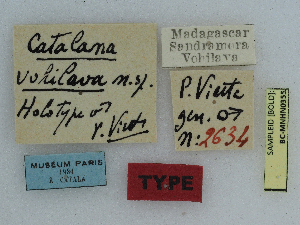 Catalana
vohilava n.sp.
Holotype ♂
P. Viette
Madagascar
Sandramora
Vohilava
P. Viette
gen. ♂
n: 2634
MUSEUM PARIS
TYPE
SAMPLEID [BOLD]: